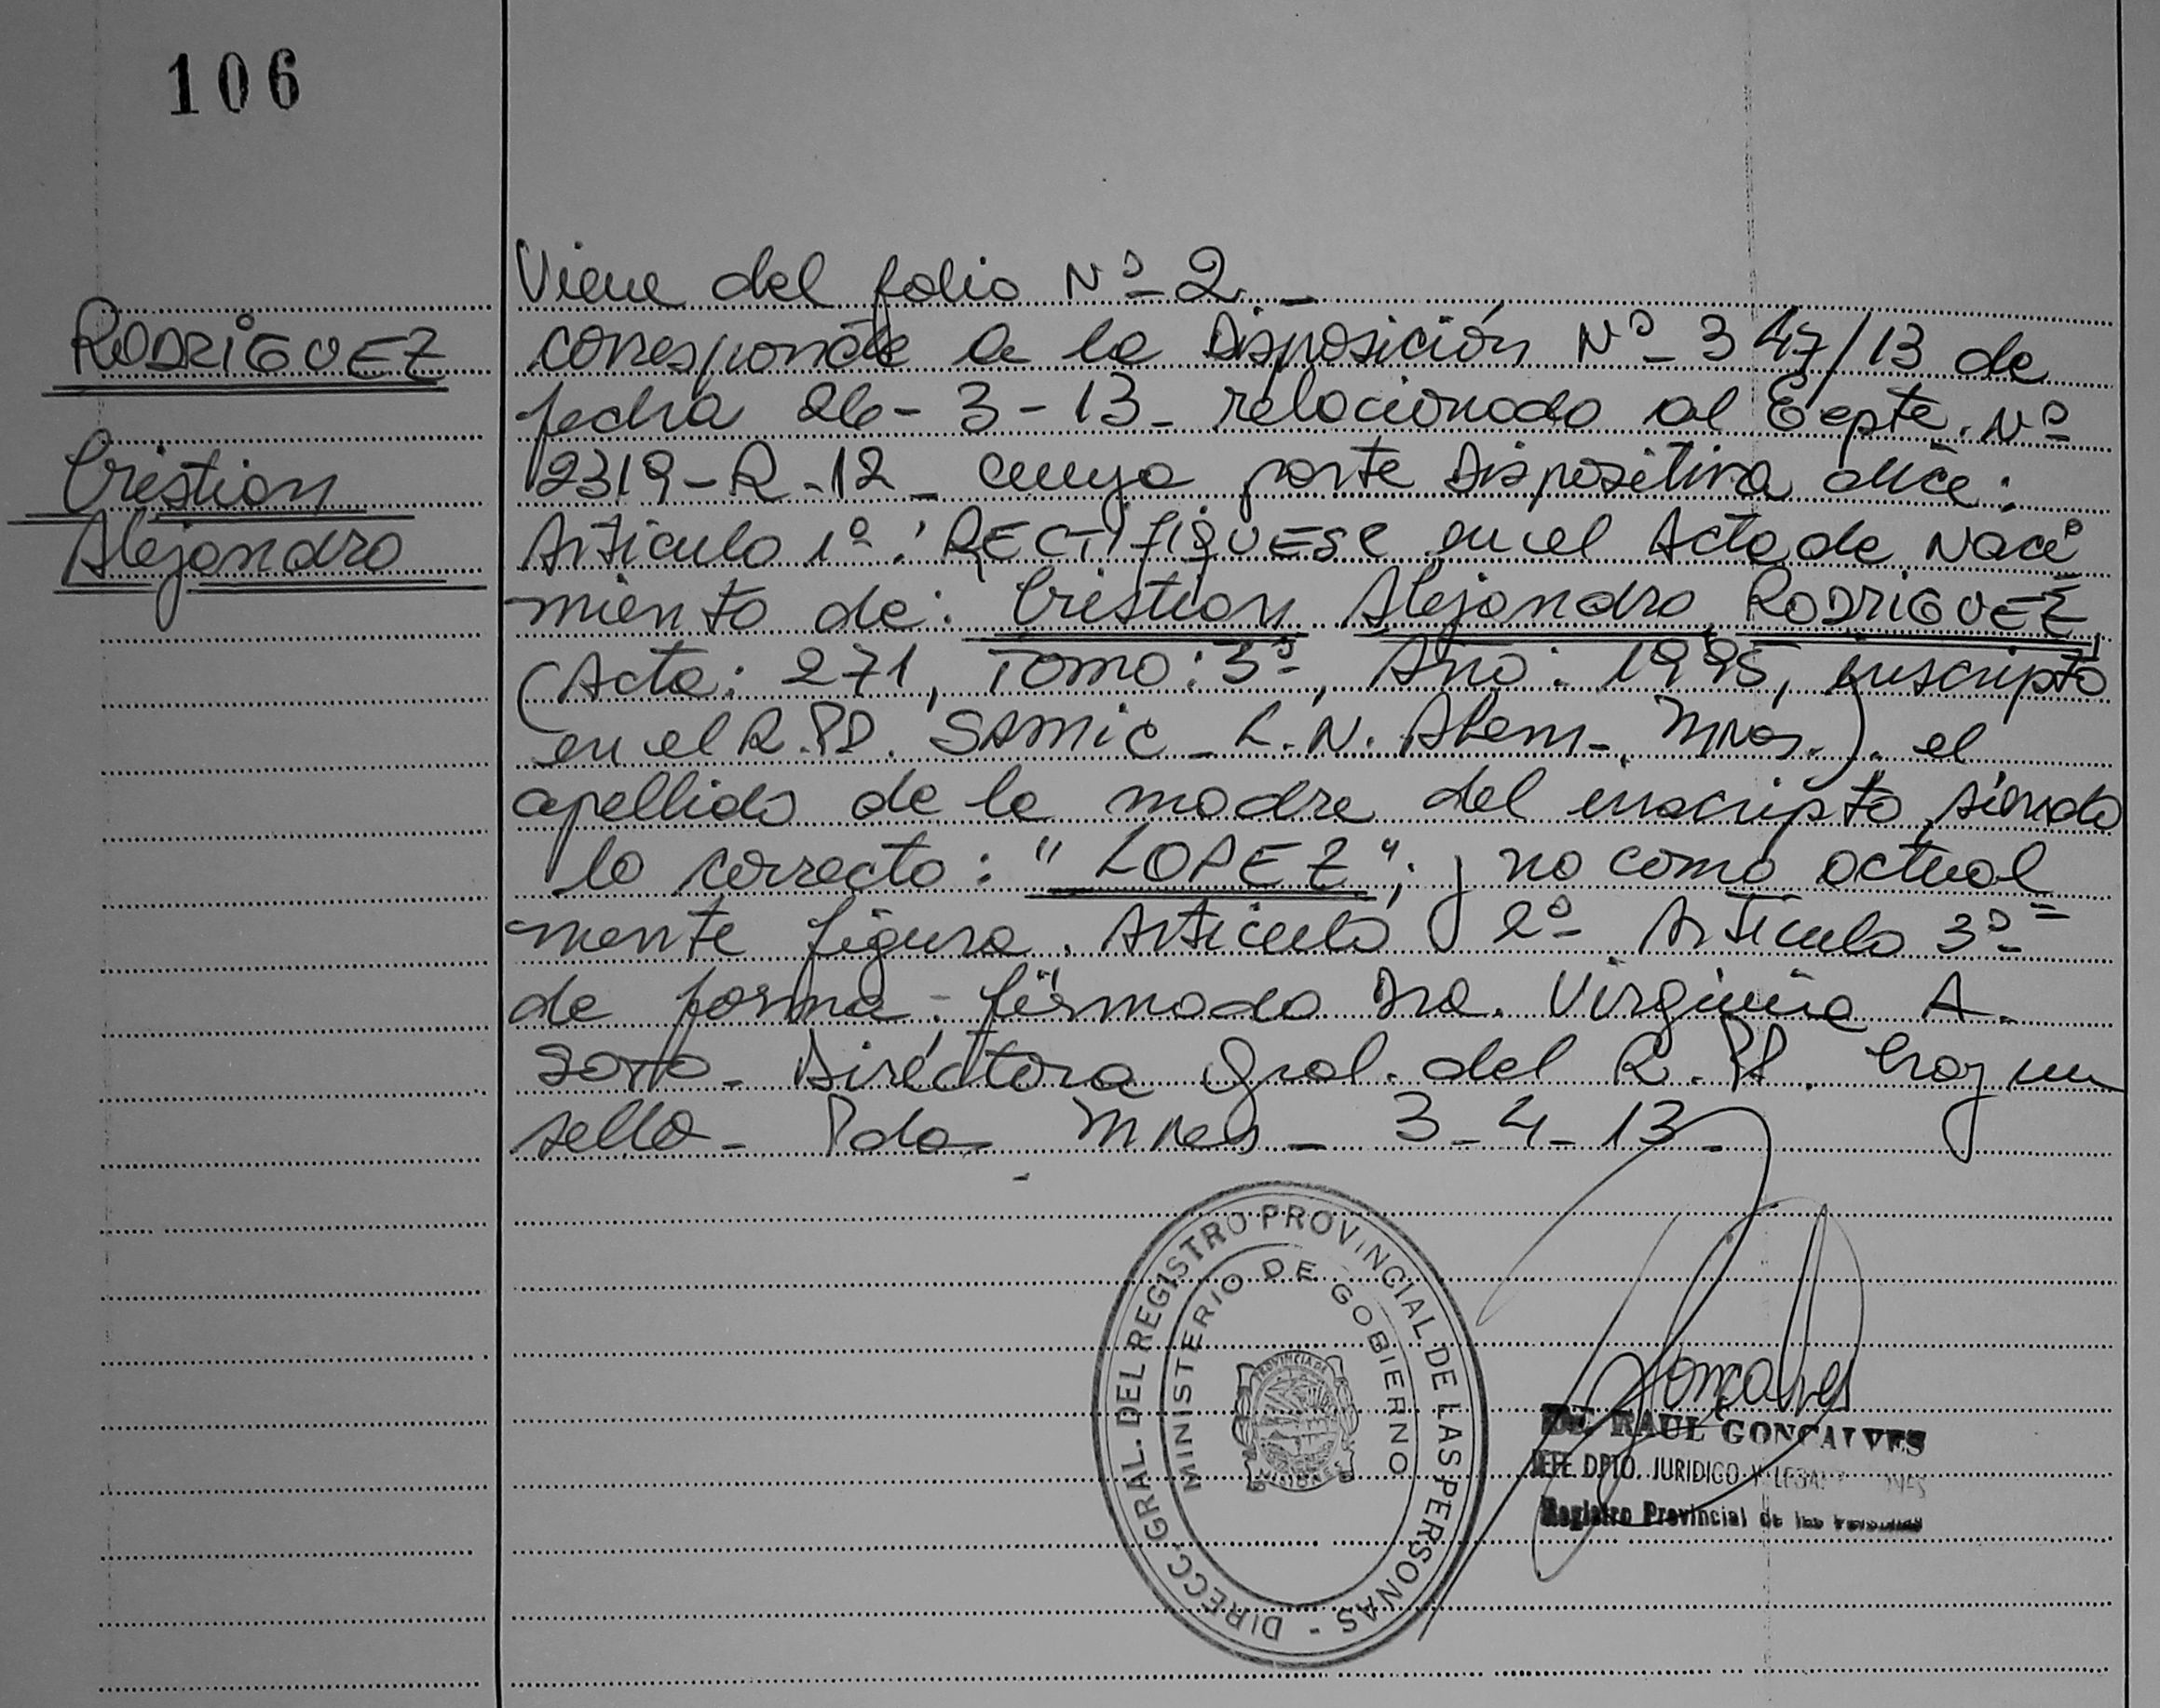 106
RODRIGUEZ
Cristian
Alejandro
Viene del folio Nº 2 -
corresponde a la Disposición Nº 347/13 de
fecha 26-3-13- relacionado al Expte. Nº
2319-R-12- cuya parte Dispositiva dice:
Artículo 1º: RECTIFIQUESE en el Acta de Naci
miento de: Cristian Alejandro RODRIGUEZ,
(Acta: 271, Tomo: 3º, Año: 1995, inscripto
en el R.PP. SAMIC - L.N. Alem - Mnes.). el
apellido de la madre del inscripto, siendo
lo correcto: "LOPEZ"; y no como actual=
mente figura. Artículo 2º Artículo 3º
de forma: firmado Dra. Virginia A.
SOTO - Directora Gral. del R.PP. hay un
sello - Pdas Mnes - 3-4-13-
DIRECC. GRAL. DEL REGISTRO PROVINCIAL DE LAS PERSONAS -
MINISTERIO DE GOBIERNO
PROVINCIA DE
MISIONES
Goncalves
RAUL GONCALVES
JEFE DPTO. JURIDICO Y
Registro Provincial de las Personas